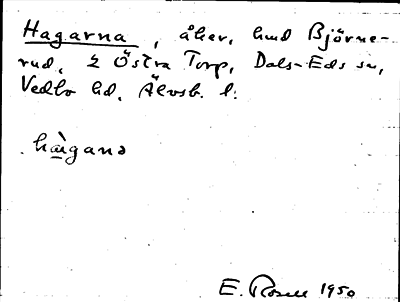 Hagarna, åker, hmd Björne-
rud, 2 Östra Torp, Dals-Eds sn,
Vedbo hd, Älvsb. l.
hàgana
E. Rosell 1950